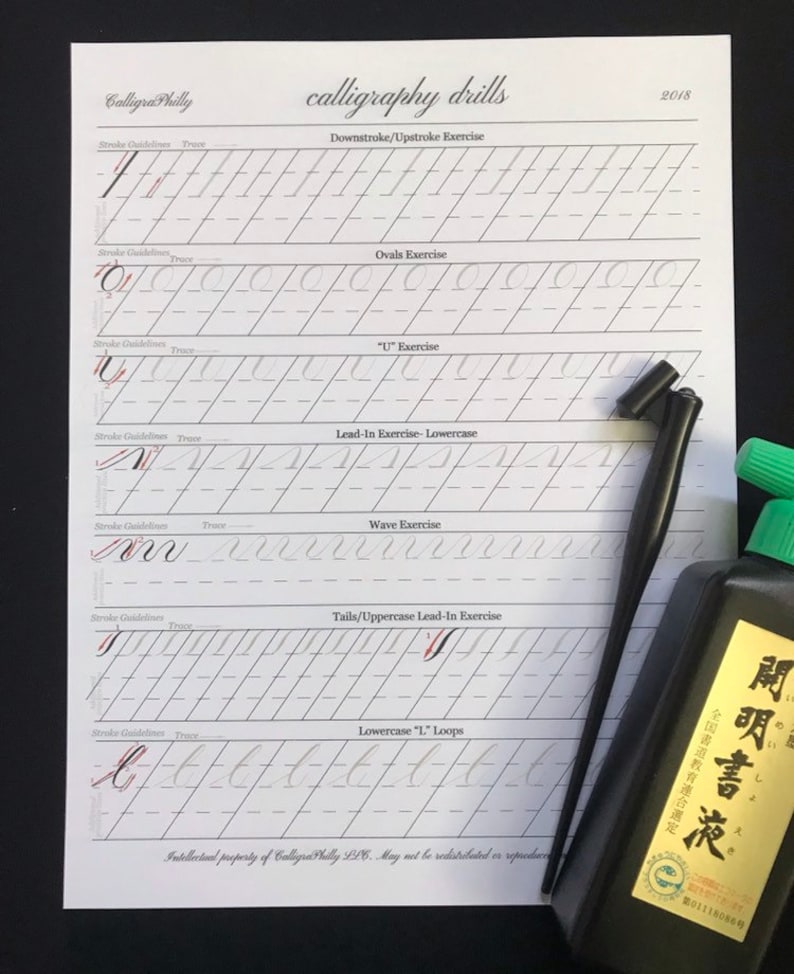 CalligraPhilly
calligraphy drills
2018
Downstroke/Upstroke Exercise
Stroke Guidelines Trace
Ovals Exercise
Stroke Guidelines Trace
1
2
"U" Exercise
Stroke Guidelines Trace
1
2
Lead-In Exercise- Lowercase
Stroke Guidelines Trace
1
2
Wave Exercise
Stroke Guidelines Trace
1
2
Tails/Uppercase Lead-In Exercise
Stroke Guidelines Trace
1
1
Lowercase "L" Loops
Stroke Guidelines Trace
1
Intellectual property of CalligraPhilly LLC. May not be redistributed or
開明書液
めいしょえき
全国書道教育連合選定
第01118086号